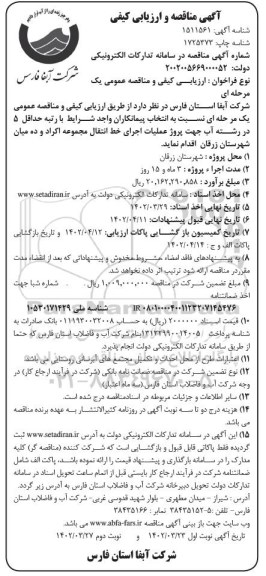 آگهی مناقصه و ارزیابی کیفی
شناسه آگهی: ۱۵۱۱۵۶۱
شناسه چاپ: ۱۷۲۵۳۷۳
شماره آگهی مناقصه در سامانه تدارکات الکترونیکی
دولت: ۲۰۰۲۰۰۵۶۶۹۰۰۰۰۵۲
شرکت آبفا فارس
نوع فراخوان: ارزیابی کیفی و مناقصه عمومی یک
مرحله ای
شرکت آبفا استان فارس در نظر دارد از طریق ارزیابی کیفی و مناقصه عمومی
یک مرحله ای نسبت به انتخاب پیمانکاران واجد شرایط با رتبه حداقل ۵
در رشته آب جهت پروژ عملیات اجرای خط انتقال مجموعه اکراد و ده میان
شهرستان زرقان اقدام نماید.
۱) محل پروژه: شهرستان زرقان
۲) مدت اجرا ء پروژه: ۳ ماه و ۱۵ روز
۳) مبلغ برآورد: ۲۰,۱۶۲,۲۹۰,۸۵۸ ریال
۴) محل اخذ اسناد: سامانه تدارکات الکترونیکی دولت به آدرس www.setadiran.ir
۵) تاریخ نهایی اخذ اسناد: ۱۴۰۲/۰۳/۲۹
۶) تاریخ نهایی قبول پیشنهادات: ۱۴۰۲/۰۴/۱۱
۷) تاریخ کمیسیون بازگشایی پاکات ارزیابی: ۱۴۰۲/۰۴/۱۲ و تاریخ بازگشایی
پاکات الف و ج: ۱۴۰۲/۰۴/۱۴
۸) به پیشنهادهای فاقد امضاء مشروط مخدوش و پیشنهاداتی که بعد از انقضاء مدت
مقرر در مناقصه ارائه شود ترتیب اثر داده نخواهد شد.
۹) مبلغ تضمین شرکت در مناقصه ۱,۰۰۹,۰۰۰,۰۰۰ ریال . شماره شبا جهت
اخذ ضمانتنامه
شناسه ملی ۱۰۵۳۰۱۷۱۴۲۹
۱۰) قیمت اسناد ۲۰۰۰۰۰۰ (ریال) به حساب ۰۱۱۱۹۲۰۰۳۲۰۰۸ بانک صادرات به
از طریق سامانه تدارکات الکترونیکی دولت انجام پذیرد.
۱۱) اعتبارات طرح از محل
۱۲) نوع تضمین شرکت در مناقصه ضمانت نامه بانکی (شرکت در فرآیند ارجاع کار) در
وجه شرکت آب و فاضلاب استان فارس (سه ماه اعتبار)
۱۳) سایر اطلاعات و جزئیات مربوطه در اسناد مناقصه درج شده است.
۱۴) هزینه درج دو تا سه نوبت آگهی در روزنامه کثیرالانتشار به عهده برنده مناقصه
می باشد.
۱۵) این آگهی در سامانه تدارکات الکترونیکی دولت به آدرس www.setadiran.ir ثبت
گردیده فقط پاکاتی قابل قبول و بازگشایی است که شرکت کننده (مناقصه گر) کلیه
مدارک را در سامانه بارگذاری و پیشنهاد قیمت را ارائه نموده باشد. پاکت الف شامل
ضمانتنامه شرکت در فرآیند ارجاع کار بایستی قبل از اتمام ساعت تحویل اسناد در سامانه
تدارکات دولت تحویل دبیرخانه شرکت آب و فاضلاب استان فارس به آدرس زیر گردد.
آدرس: شیراز - میدان مطهری - بلوار شهید قدوسی غربی- شرکت آب و فاضلاب استان
فارس- تلفن: ۵-۳۸۴۳۵۱۵۲ نمابر: ۳۸۴۳۵۱۶۶
وب سایت جهت باز بینی آگهی مناقصه www.abfa-fars.ir می باشد
تاریخ آگهی نوبت اول ۱۴۰۲/۰۳/۲۳ و نوبت دوم ۱۴۰۲/۰۳/۲۷
شرکت آبفا استان فارس